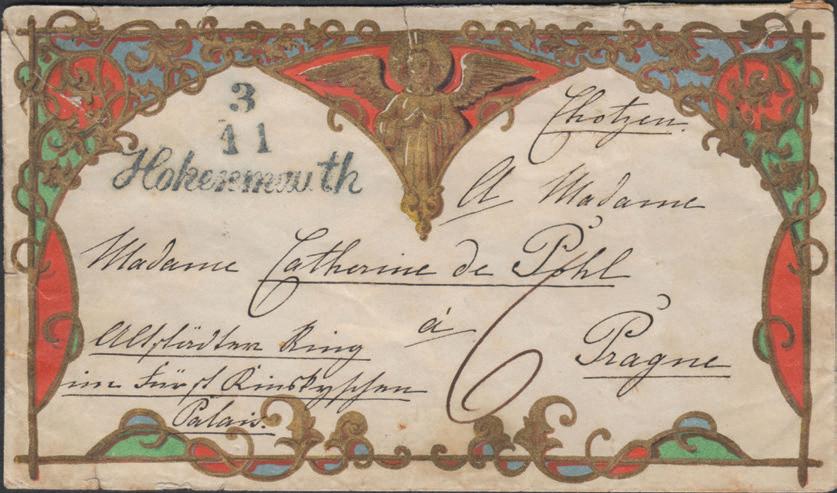 3
11
Hohenmauth
Chotzen.
A Madame
Madame Catherine de Pohl
à
Prague
6
Altstädter Ring
im Fürst Kinskyschen
Palais.